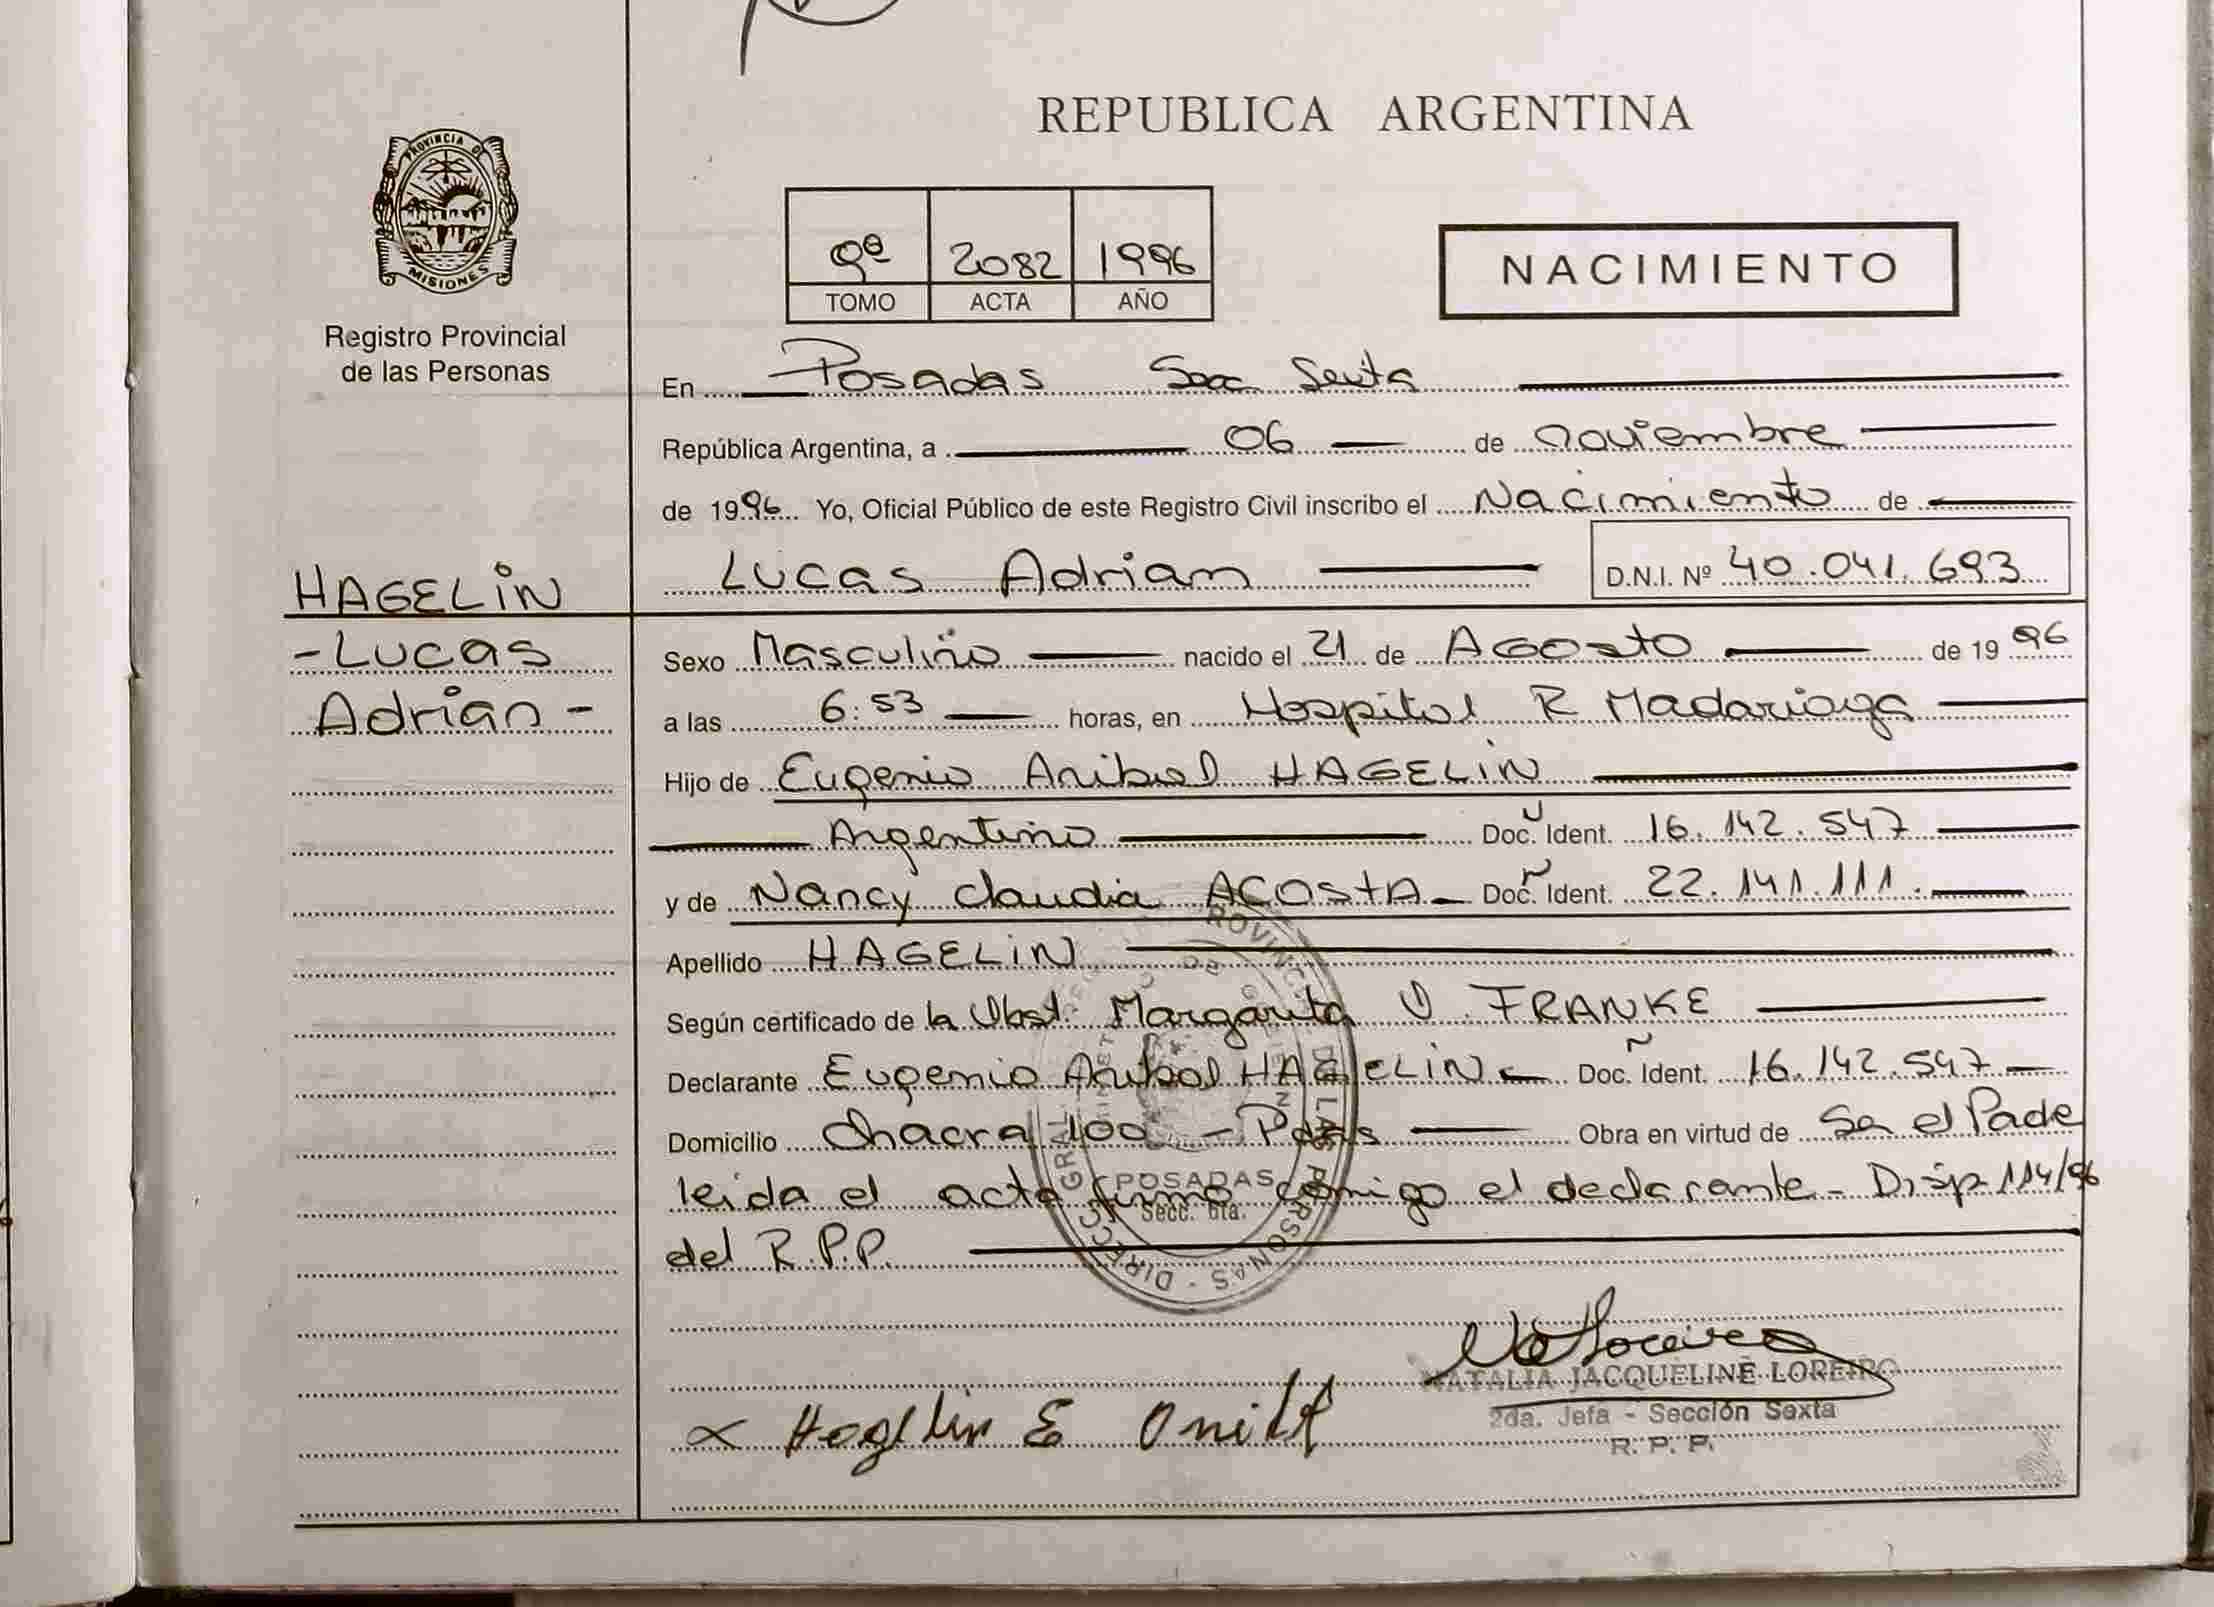 REPUBLICA ARGENTINA
PROVINCIA DE
MISIONES
Registro Provincial
de las Personas
9º 2082 1996
TOMO ACTA AÑO
NACIMIENTO
En Posadas Secc. Sexta
República Argentina, a 06 de noviembre
de 1996 Yo, Oficial Público de este Registro Civil inscribo el Nacimiento de
Lucas Adrian D.N.I. Nº 40.041.693
HAGELIN
-Lucas
Adrian-
Sexo Masculino nacido el 21 de AGosto de 19 96
a las 6:53 horas, en Hospital R Madariaga
Hijo de Eugenio Anibal HAGELIN
Argentino Doc. Ident. 16.142.547
y de Nancy Claudia ACOSTA Doc. Ident. 22.141.111.
Apellido HAGELIN
Según certificado de la Obst. Margarita FRANKE
Declarante Eugenio Anibal HAGELIN Doc. Ident. 16.142.547
Domicilio Chacra 100 - Pdas Obra en virtud de Se el Padre
leida el acta firma comigo el declarante - Disp. 114/96
del R.P.P.
DIRECC. GRAL. PROVINCIAL DE LAS PERSONAS
POSADAS
Secc. 6ta.
NATALIA JACQUELINE LOREIRO
2da. Jefa - Sección Sexta
R. P. P.
Hagelin E